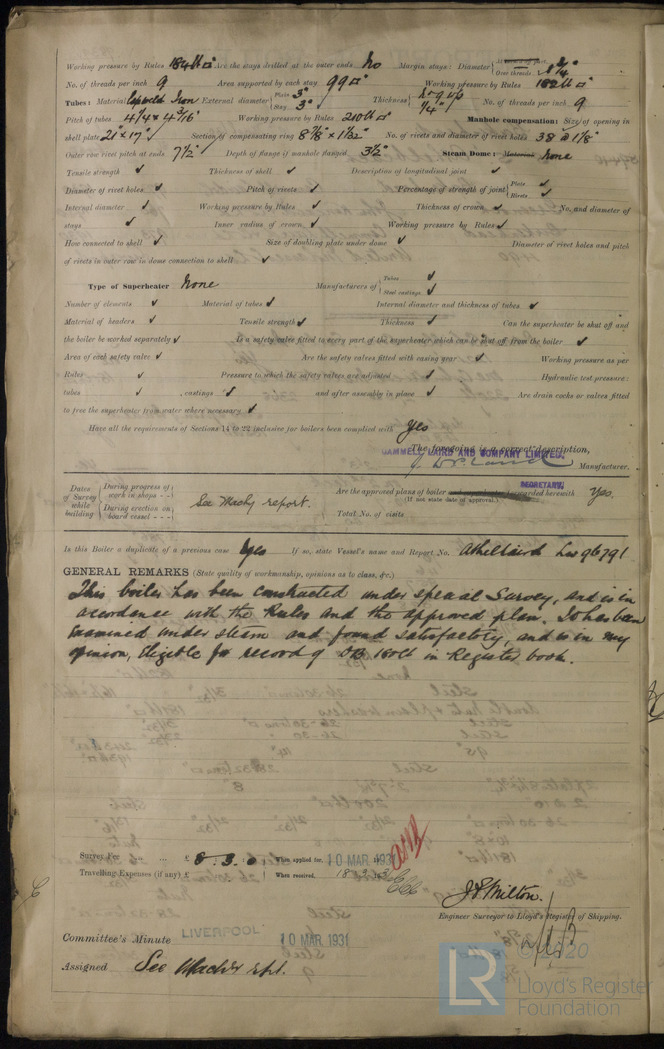 Working pressure by Rules 184 lb □" Are the stays drilled at the outer ends No Margin stays: Diameter { At turned off part, or Over threads 1 3/4"
No. of threads per inch 9 Area supported by each stay 99 □" Working pressure by Rules 182 lb □"
Tubes: Material Lapweld Iron External diameter { Plain 3" Stay 3" Thickness { 1/4" No. of threads per inch 9
Pitch of tubes 4 1/4 x 4 3/16" Working pressure by Rules 210 lb □" Manhole compensation: Size of opening in
shell plate 21" x 17" Section of compensating ring 8 7/8" x 1 1/32" No. of rivets and diameter of rivet holes 38 @ 1 1/8"
Outer row rivet pitch at ends 7 1/2" Depth of flange if manhole flanged 3 1/2" Steam Dome: Material None
Tensile strength ✓ Thickness of shell ✓ Description of longitudinal joint ✓
Diameter of rivet holes ✓ Pitch of rivets ✓ Percentage of strength of joint { Plate ✓ Rivets ✓
Internal diameter ✓ Working pressure by Rules ✓ Thickness of crown ✓ No. and diameter of
stays ✓ Inner radius of crown ✓ Working pressure by Rules ✓
How connected to shell ✓ Size of doubling plate under dome ✓ Diameter of rivet holes and pitch
of rivets in outer row in dome connection to shell ✓
Type of Superheater None Manufacturers of { Tubes ✓ Steel castings ✓
Number of elements ✓ Material of tubes ✓ Internal diameter and thickness of tubes ✓
Material of headers ✓ Tensile strength ✓ Thickness ✓ Can the superheater be shut off and
the boiler be worked separately ✓ Is a safety valve fitted to every part of the superheater which can be shut off from the boiler ✓
Area of each safety valve ✓ Are the safety valves fitted with easing gear ✓ Working pressure as per
Rules ✓ Pressure to which the safety valves are adjusted ✓ Hydraulic test pressure:
tubes ✓, castings ✓ and after assembly in place ✓ Are drain cocks or valves fitted
to free the superheater from water where necessary ✓
Have all the requirements of Sections 14 to 22 inclusive for boilers been complied with Yes
The foregoing is a correct description,
CAMMELL LAIRD AND COMPANY LIMITED,
Manufacturer.
SECRETARY.
Dates of Survey while building { During progress of work in shops - - During erection on board vessel - - - } See Machy report.
Are the approved plans of boiler forwarded herewith Yes.
(If not state date of approval.)
Total No. of visits
Is this Boiler a duplicate of a previous case Yes If so, state Vessel's name and Report No. Athellaird 96791
GENERAL REMARKS (State quality of workmanship, opinions as to class, &c.)
This boiler has been constructed under special Survey, and is in
accordance with the Rules and the approved plan. It has been
examined under steam and found satisfactory, and is in my
opinion, Eligible for record of DB 180 lb in Register book.
Survey Fee ... ... £ 8 : 3 . 0 When applied for, 10 MAR 1931
Travelling Expenses (if any) £ : : When received,
J. S. Milton.
Engineer Surveyor to Lloyd's Register of Shipping.
Committee's Minute LIVERPOOL 10 MAR. 1931
Assigned See Machy rpt.
© 2020
LR
Lloyd's Register
Foundation